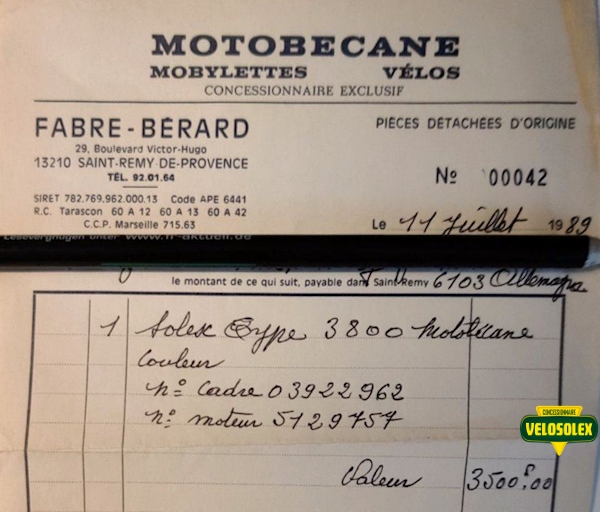 MOTOBECANE
MOBYLETTES VÉLOS
CONCESSIONNAIRE EXCLUSIF
FABRE-BÉRARD
29, Boulevard Victor-Hugo
13210 SAINT-REMY-DE-PROVENCE
TÉL. 92.01.64
PIÈCES DÉTACHÉES D'ORIGINE
Nº 00042
SIRET 782.769.962.000.13 Code APE 6441
R.C. Tarascon 60 A 12 60 A 13 60 A 42
C.C.P. Marseille 715.63
Le 11 Juillet 1989
Lesevergnügen unter www.lf-aktuell.de
le montant de ce qui suit, payable dans Saint-Remy 6103 Allemagne
1 Solex Type 3800 Motobécane
Couleur
nº Cadre 03922962
nº moteur 5129757
CONCESSIONNAIRE
VELOSOLEX
Valeur 3500F.00